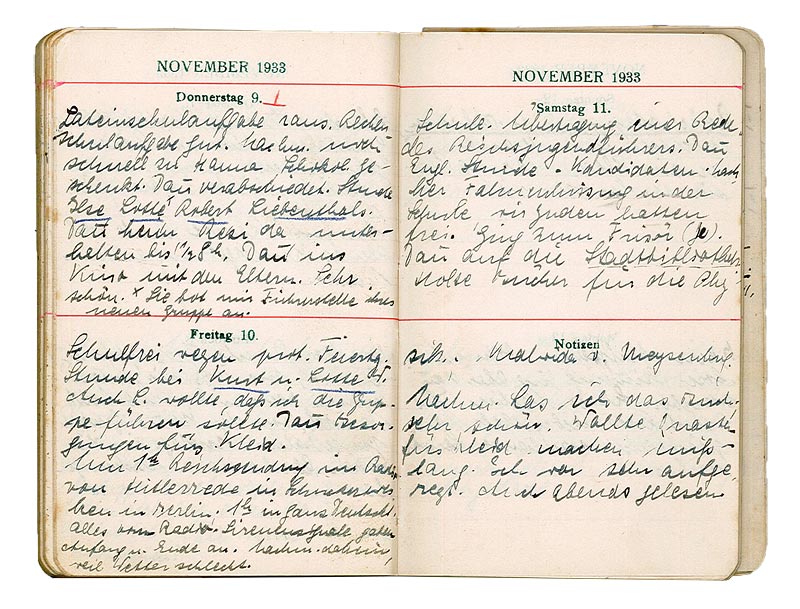 NOVEMBER 1933
Donnerstag 9. 1
Lateinschulaufgabe raus. Rechen
schulaufgabe gut. Nachm. noch
schnell zu Hanna Schokol. ge-
schenkt. Dan verabschiedet. Stunde
Ilse Lotte Robert Liebenthals.
Dan herein Resi da unter-
halten bis 1/2 8 h. Dan ins
Kino mit den Eltern. Sehr
schön. x Sie bot mir Führerstelle ihrer
neuen Gruppe an.
Freitag 10.
Schulfrei wegen prot. Feiertg.
Stunde bei Kurt u. Lotte T.
Auch L. wollte, daß ich die Grup-
pe führen sollte. Dan Besor-
gungen fürs Kleid.
Um 1 h Reichssendung im Radio
von Hitlerrede in Siemenswer-
ken in Berlin. 1 h in ganz Deutschl.
alles vom Radio. Sirenensignale gaben
Anfang u. Ende an. Nachm. daheim,
weil Wetter schlecht.
NOVEMBER 1933
Samstag 11.
Schule. Übertragung einer Rede
des Reichsjugendführers. Dan
Engl. Stunde - Kandidaten. Nach-
her Fahnenhissung in der
Schule wir Juden hatten
frei. Ging zum Frisör (Je).
Dan auf die Stadtbibliothek.
Holte Bücher für die Phy
Notizen
sik. Malvida v. Meysenbug.
Nachm. Las ich das Buch.
sehr schön. Wollte Quaste
fürs Kleid machen miß-
lang. Ich war sehr aufge-
regt. Auch Abends gelesen